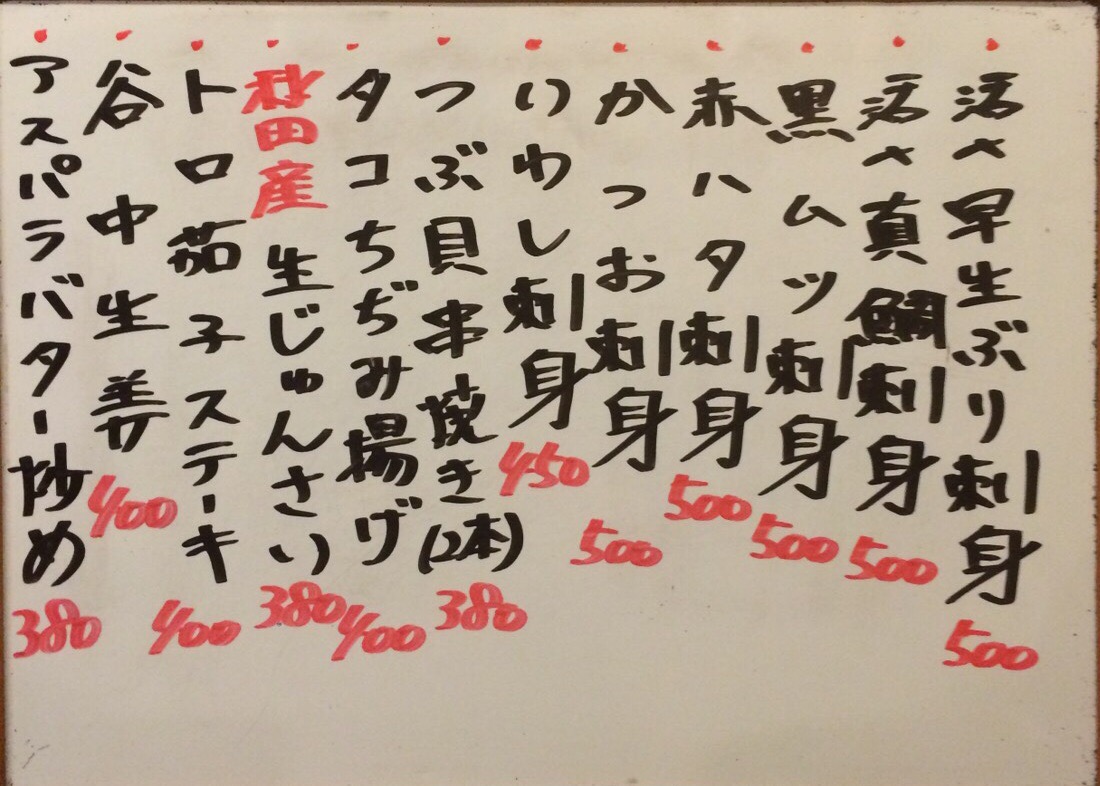 活〆早生ぶり刺身 500
活〆真鯛刺身 500
黒ムツ刺身 500
赤ハタ刺身 500
かつお刺身 500
いわし刺身 450
つぶ貝串焼き(2本) 380
タコちぢみ揚げ 400
秋田産生じゅんさい 380
トロ茄子ステーキ 400
谷中生姜 400
アスパラバター炒め 380